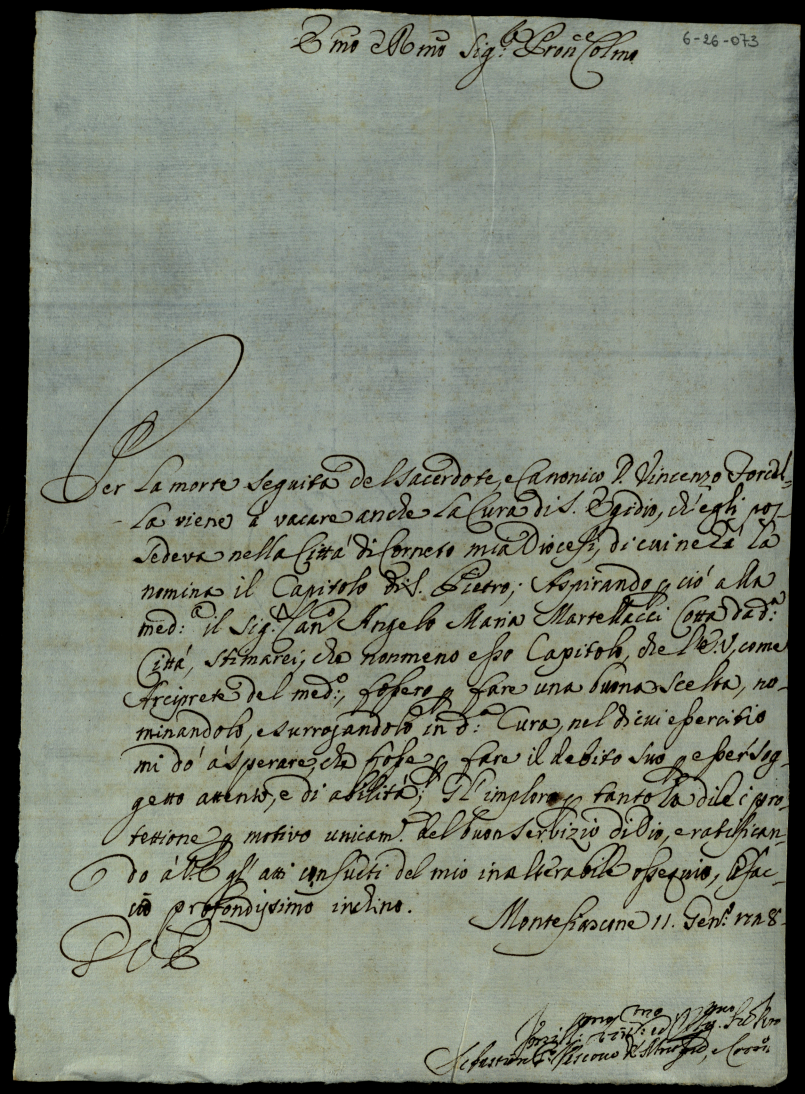 6-26-073
Emo e Rmo Sig.re Pron Colmo
Per la morte seguita del Sacerdote, e Canonico D. Vincenzo Forcel-
la viene à vacare anche la Cura di S. Egidio, ch'egli pos-
sedeva nella Città di Corneto mia Diocesi, di cui ne hà la
nomina il Capitolo di S. Pietro; Aspirando p ciò alla
med:a il Sig.r Can.o Angelo Maria Martellacci Cotta da d.a
Città, stimarei, che nonmeno esso Capitolo, che l'E. V., come
Arciprete del med:o, fossero p fare una buona scelta, no-
minandolo, e surrogandolo in d.a Cura, nel di cui essercitio
mi dò à sperare, che fosse p fare il debito suo p esser sog-
getto attento, e di abilità; Gl'imploro p tanto la di lei pro-
tettione p motivo unicam.e del buon servizio di Dio, e ratifican-
do all'E. V. gl'atti consueti del mio inalterabile ossequio, le fac-
cio profondissimo inchino.
Montefiascone 11. Gen.o 1728.
D V E
Sebastian Vescovo di Montef., e Corn.o